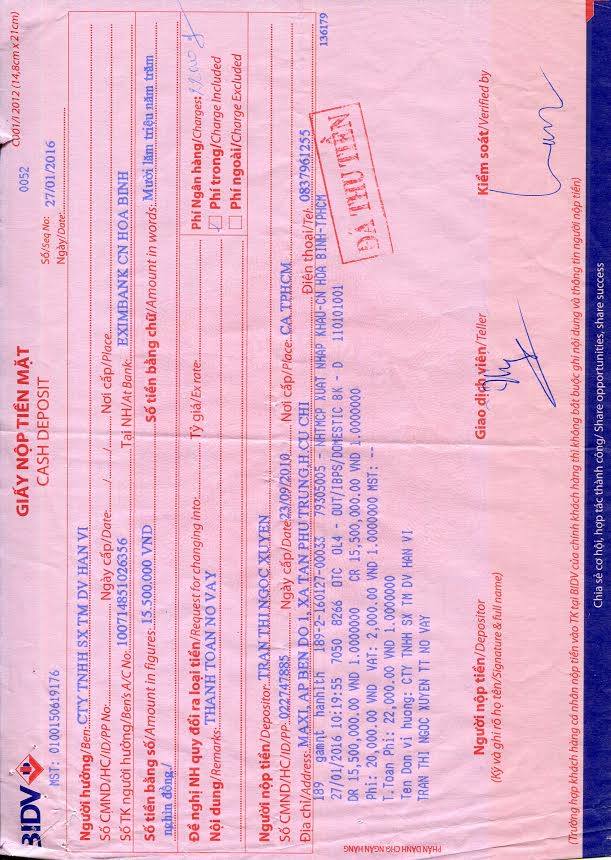 BIDV
MST: 0100150619176
GIẤY NỘP TIỀN MẶT
CASH DEPOSIT
C001/I 2012 (14,8cm x 21cm)
Số/Seq No: 0052
Ngày/Date: 27/01/2016
Người hưởng/Ben: CTY TNHH SX TM DV HAN VI
Số CMND/HC/ID/PP No: Ngày cấp/Date: / / Nơi cấp/Place
Số TK người hưởng/Ben's A/C No: 100714851026356 Tại NH/At Bank: EXIMBANK CN HOA BINH
Số tiền bằng số/Amount in figures: 15.500.000 VND Số tiền bằng chữ/Amount in words: Mười lăm triệu năm trăm
nghìn đồng./
Đề nghị NH quy đổi ra loại tiền/Request for changing into: Tỷ giá/Ex rate:
Nội dung/Remarks: THANH TOAN NO VAY
Phí Ngân hàng/Charges: 22.000 đ
Phí trong/Charge Included
Phí ngoài/Charge Excluded
Người nộp tiền/Depositor: TRAN THI NGOC XUYEN
Số CMND/HC/ID/PP: 022747885 Ngày cấp/Date: 23/09/2010 Nơi cấp/Place: CA TPHCM
Địa chỉ/Address: MAXI, AP BEN DO 1, XA TAN PHU TRUNG, H CU CHI Điện thoại/Tel: 0837961255
136179
189 gamnt hanhlth 189-2-160127-00033 79305005 - NHTMCP XUAT NHAP KHAU-CN HOA BINH-TPHCM
27/01/2016 10:19:55 7050 B266 OTC OL4 - OUT/IBPS/DOMESTIC BK - D 110101001
DR 15,500,000.00 VND 1.0000000 CR 15,500,000.00 VND 1.0000000
Phi: 20,000.00 VND VAT: 2,000.00 VND 1.0000000 MST: --
T.Toan Phi: 22,000.00 VND 1.0000000
Ten Don vi Huong: CTY TNHH SX TM DV HAN VI
TRAN THI NGOC XUYEN TT NO VAY
ĐÃ THU TIỀN
PHẦN DÀNH CHO NGÂN HÀNG
Người nộp tiền/Depositor
(Ký và ghi rõ họ tên/Signature & full name)
Giao dịch viên/Teller
Kiểm soát/Verified by
(Trường hợp khách hàng cá nhân nộp tiền vào TK tại BIDV của chính khách hàng thì không bắt buộc ghi nội dung và thông tin người nộp tiền)
Chia sẻ cơ hội, hợp tác thành công/ Share opportunities, share success